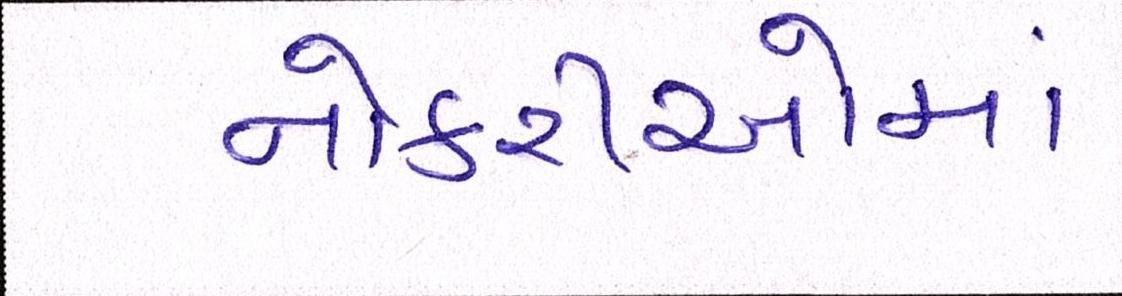 નોકરીઓમાં